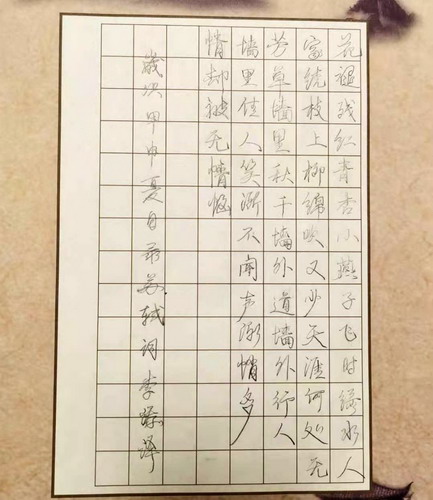 花褪残红青杏小燕子飞时绿水人
家绕枝上柳绵吹又少天涯何处无
芳草墙里秋千墙外道墙外行人
墙里佳人笑渐不闻声渐悄多
情却被无情恼
歲次甲申夏日录苏轼词李泽